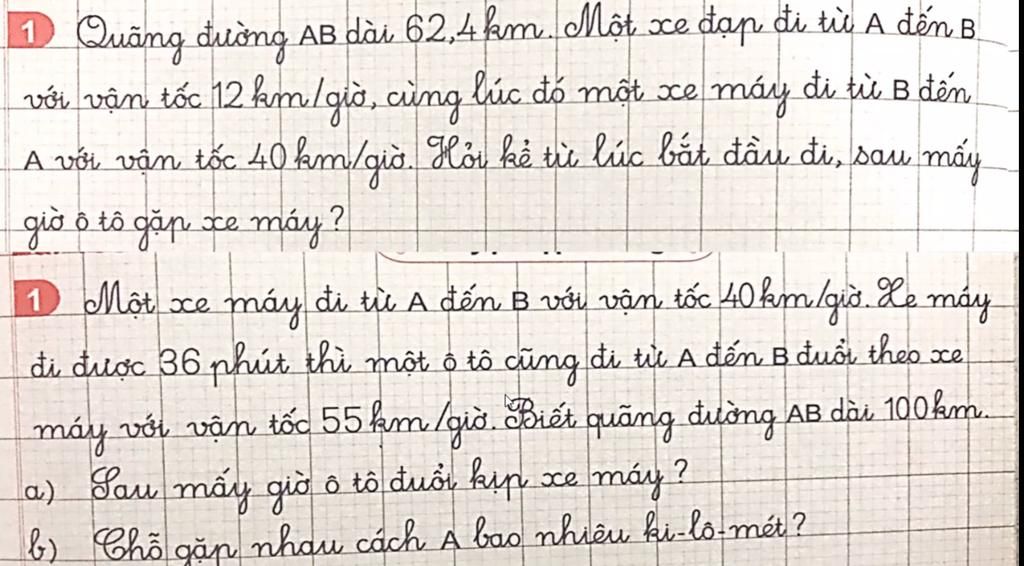 1 Quãng đường AB dài 62,4 km. Một xe đạp đi từ A đến B
với vận tốc 12 km/giờ, cùng lúc đó một xe máy đi từ B đến
A với vận tốc 40 km/giờ. Hỏi kể từ lúc bắt đầu đi, sau mấy
giờ ô tô gặp xe máy?
1 Một xe máy đi từ A đến B với vận tốc 40 km/giờ. Xe máy
đi được 36 phút thì một ô tô cũng đi từ A đến B đuổi theo xe
máy với vận tốc 55 km/giờ. Biết quãng đường AB dài 100 km.
a) Sau mấy giờ ô tô đuổi kịp xe máy?
b) Chỗ gặp nhau cách A bao nhiêu ki-lô-mét?